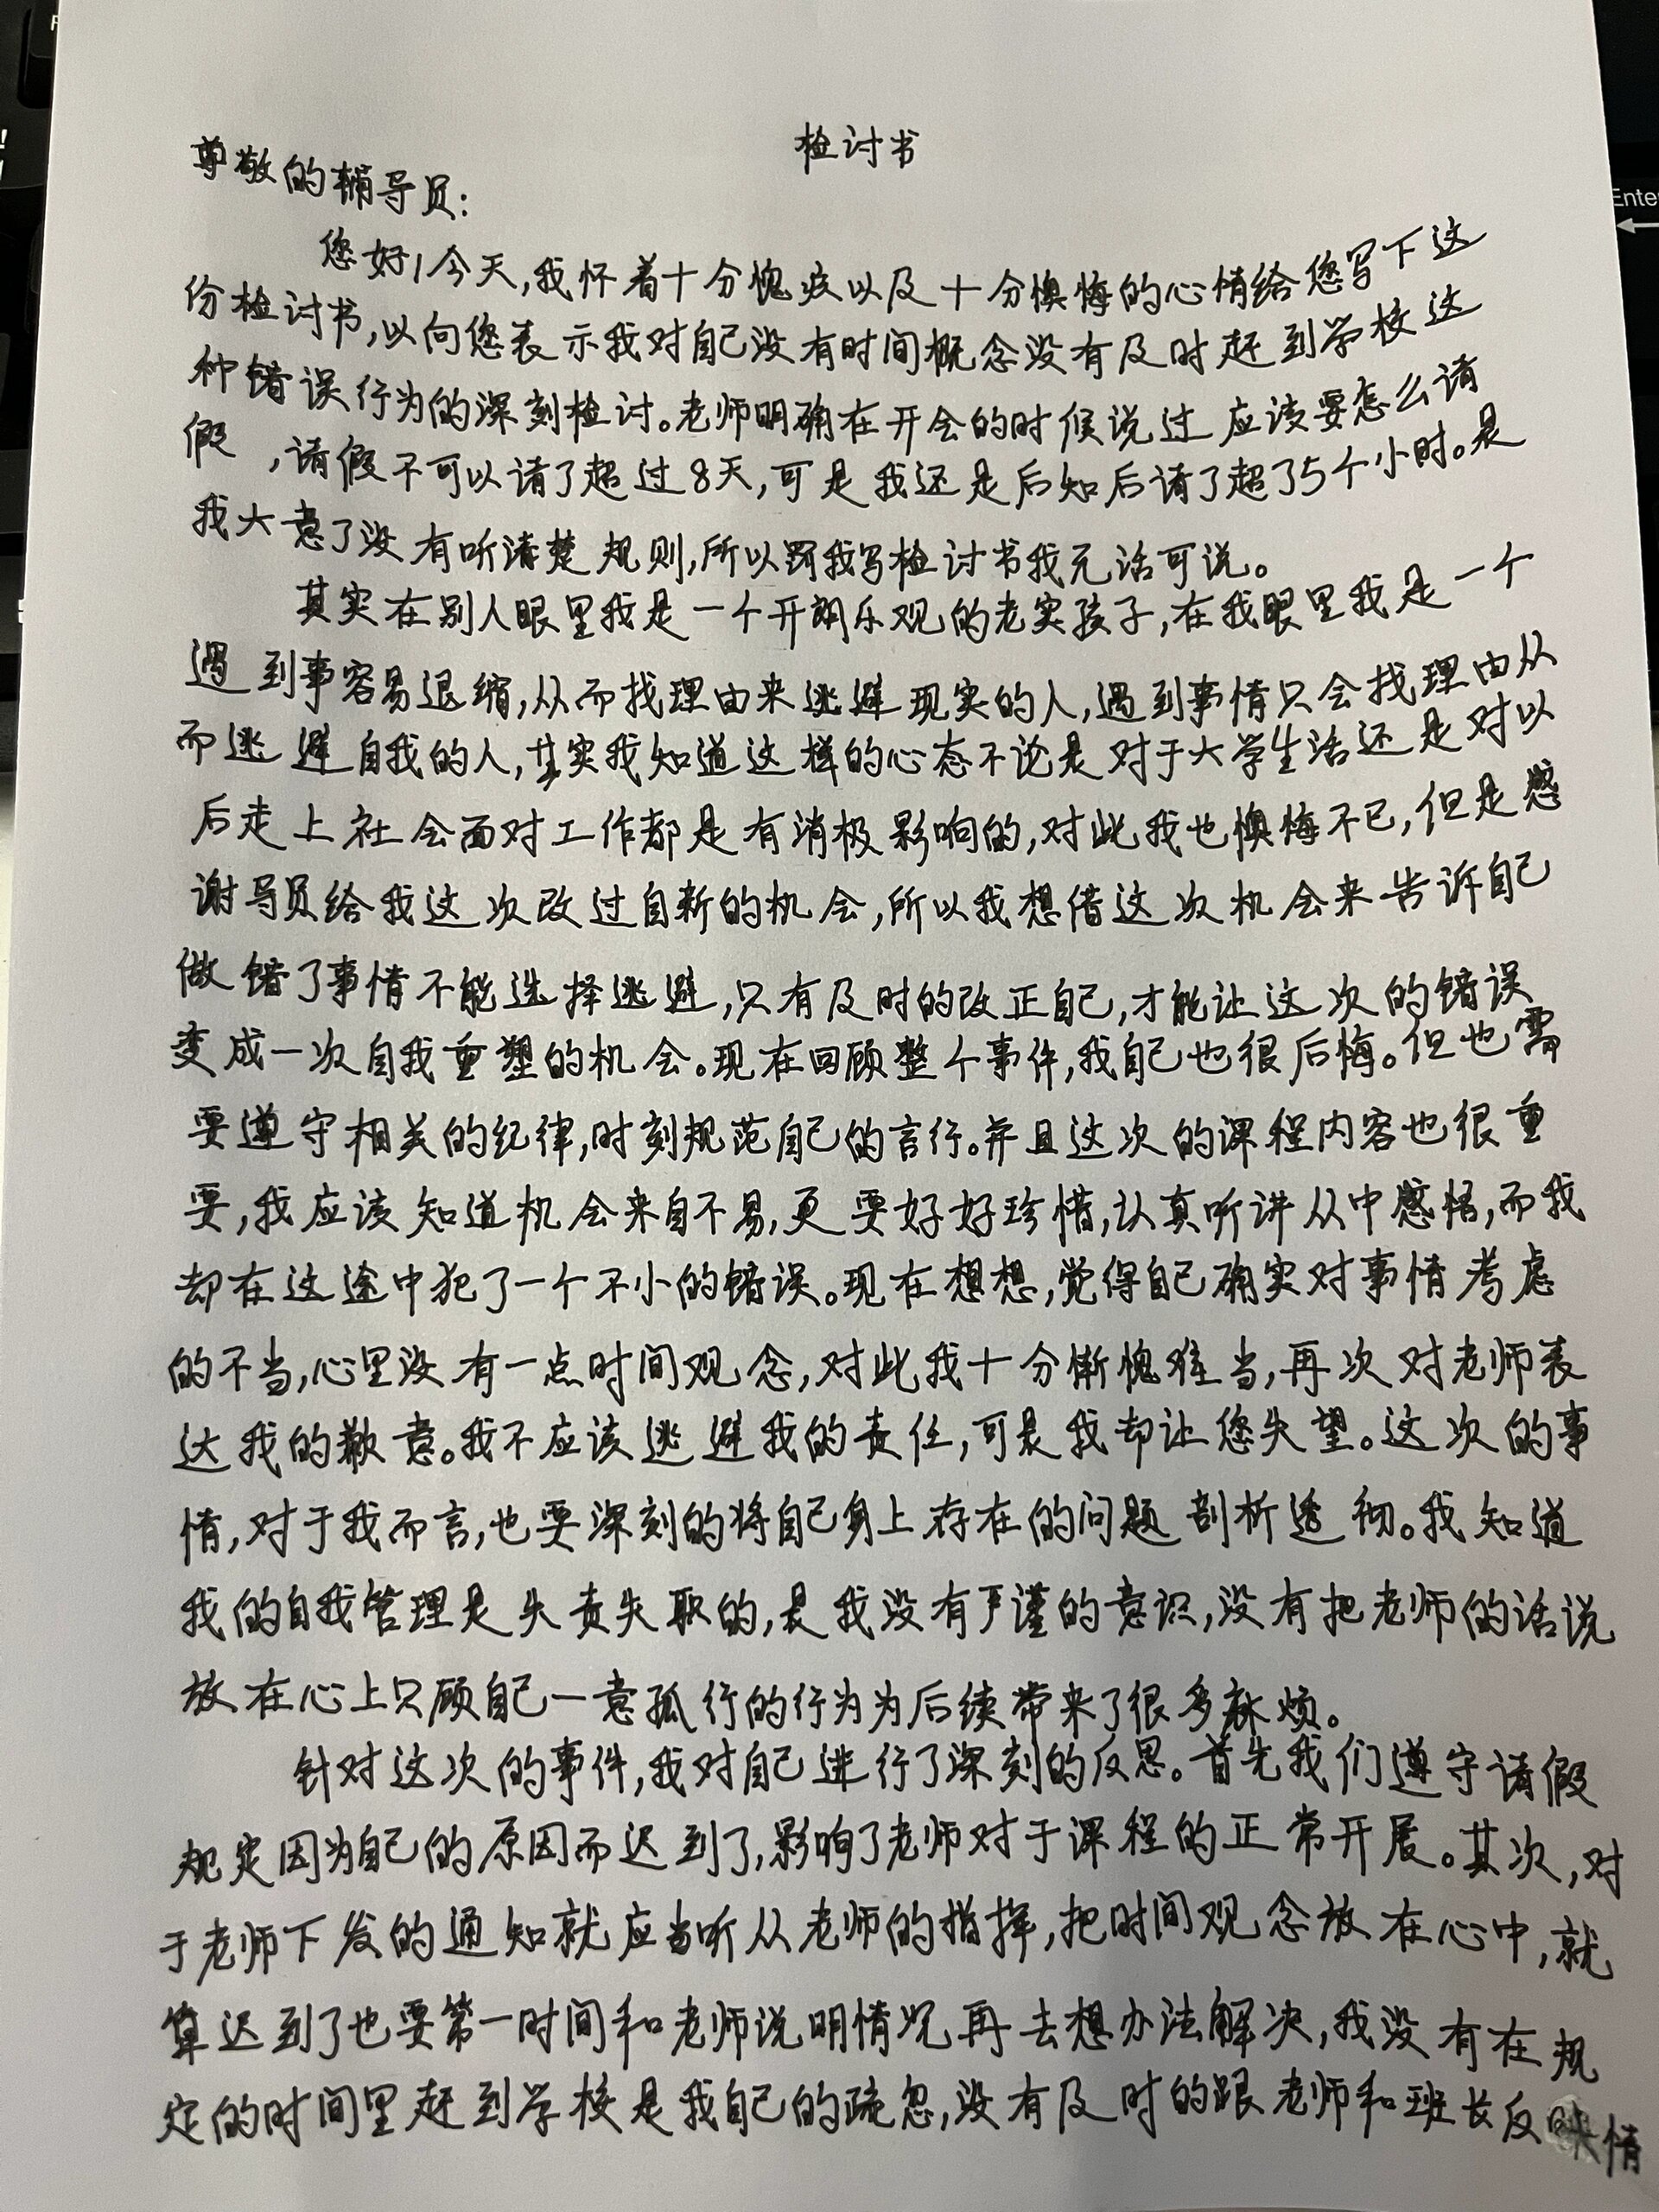 检讨书
尊敬的辅导员:
您好!今天,我怀着十分愧疚以及十分懊悔的心情给您写下这
份检讨书,以向您表示我对自己没有时间概念没有及时赶到学校这
种错误行为的深刻检讨。老师明确在开会的时候说过应该要怎么请
假,请假不可以请了超过8天,可是我还是后知后请了超了5个小时。是
我大意了没有听清楚规则,所以罚我写检讨书我无话可说。
其实在别人眼里我是一个开朗乐观的老实孩子,在我眼里我是一个
遇到事容易退缩,从而找理由来逃避现实的人,遇到事情只会找理由从
而逃避自我的人,其实我知道这样的心态不论是对于大学生活还是对以
后走上社会面对工作都是有消极影响的,对此我也懊悔不已,但是感
谢导员给我这次改过自新的机会,所以我想借这次机会来告诉自己
做错了事情不能选择逃避,只有及时的改正自己,才能让这次的错误
变成一次自我重塑的机会。现在回顾整个事件,我自己也很后悔。但也需
要遵守相关的纪律,时刻规范自己的言行。并且这次的课程内容也很重
要,我应该知道机会来自不易,更要好好珍惜,认真听讲从中感悟,而我
却在这途中犯了一个不小的错误。现在想想,觉得自己确实对事情考虑
的不当,心里没有一点时间观念,对此我十分惭愧难当,再次对老师表
达我的歉意。我不应该逃避我的责任,可是我却让您失望。这次的事
情,对于我而言,也要深刻的将自己身上存在的问题剖析透彻。我知道
我的自我管理是失责失职的,是我没有严谨的意识,没有把老师的话说
放在心上只顾自己一意孤行的行为为后续带来了很多麻烦。
针对这次的事件,我对自己进行了深刻的反思。首先我们遵守请假
规定因为自己的原因而迟到了,影响了老师对于课程的正常开展。其次,对
于老师下发的通知就应当听从老师的指挥,把时间观念放在心中,就
算迟到了也要第一时间和老师说明情况再去想办法解决,我没有在规
定的时间里赶到学校是我自己的疏忽,没有及时的跟老师和班长反映情